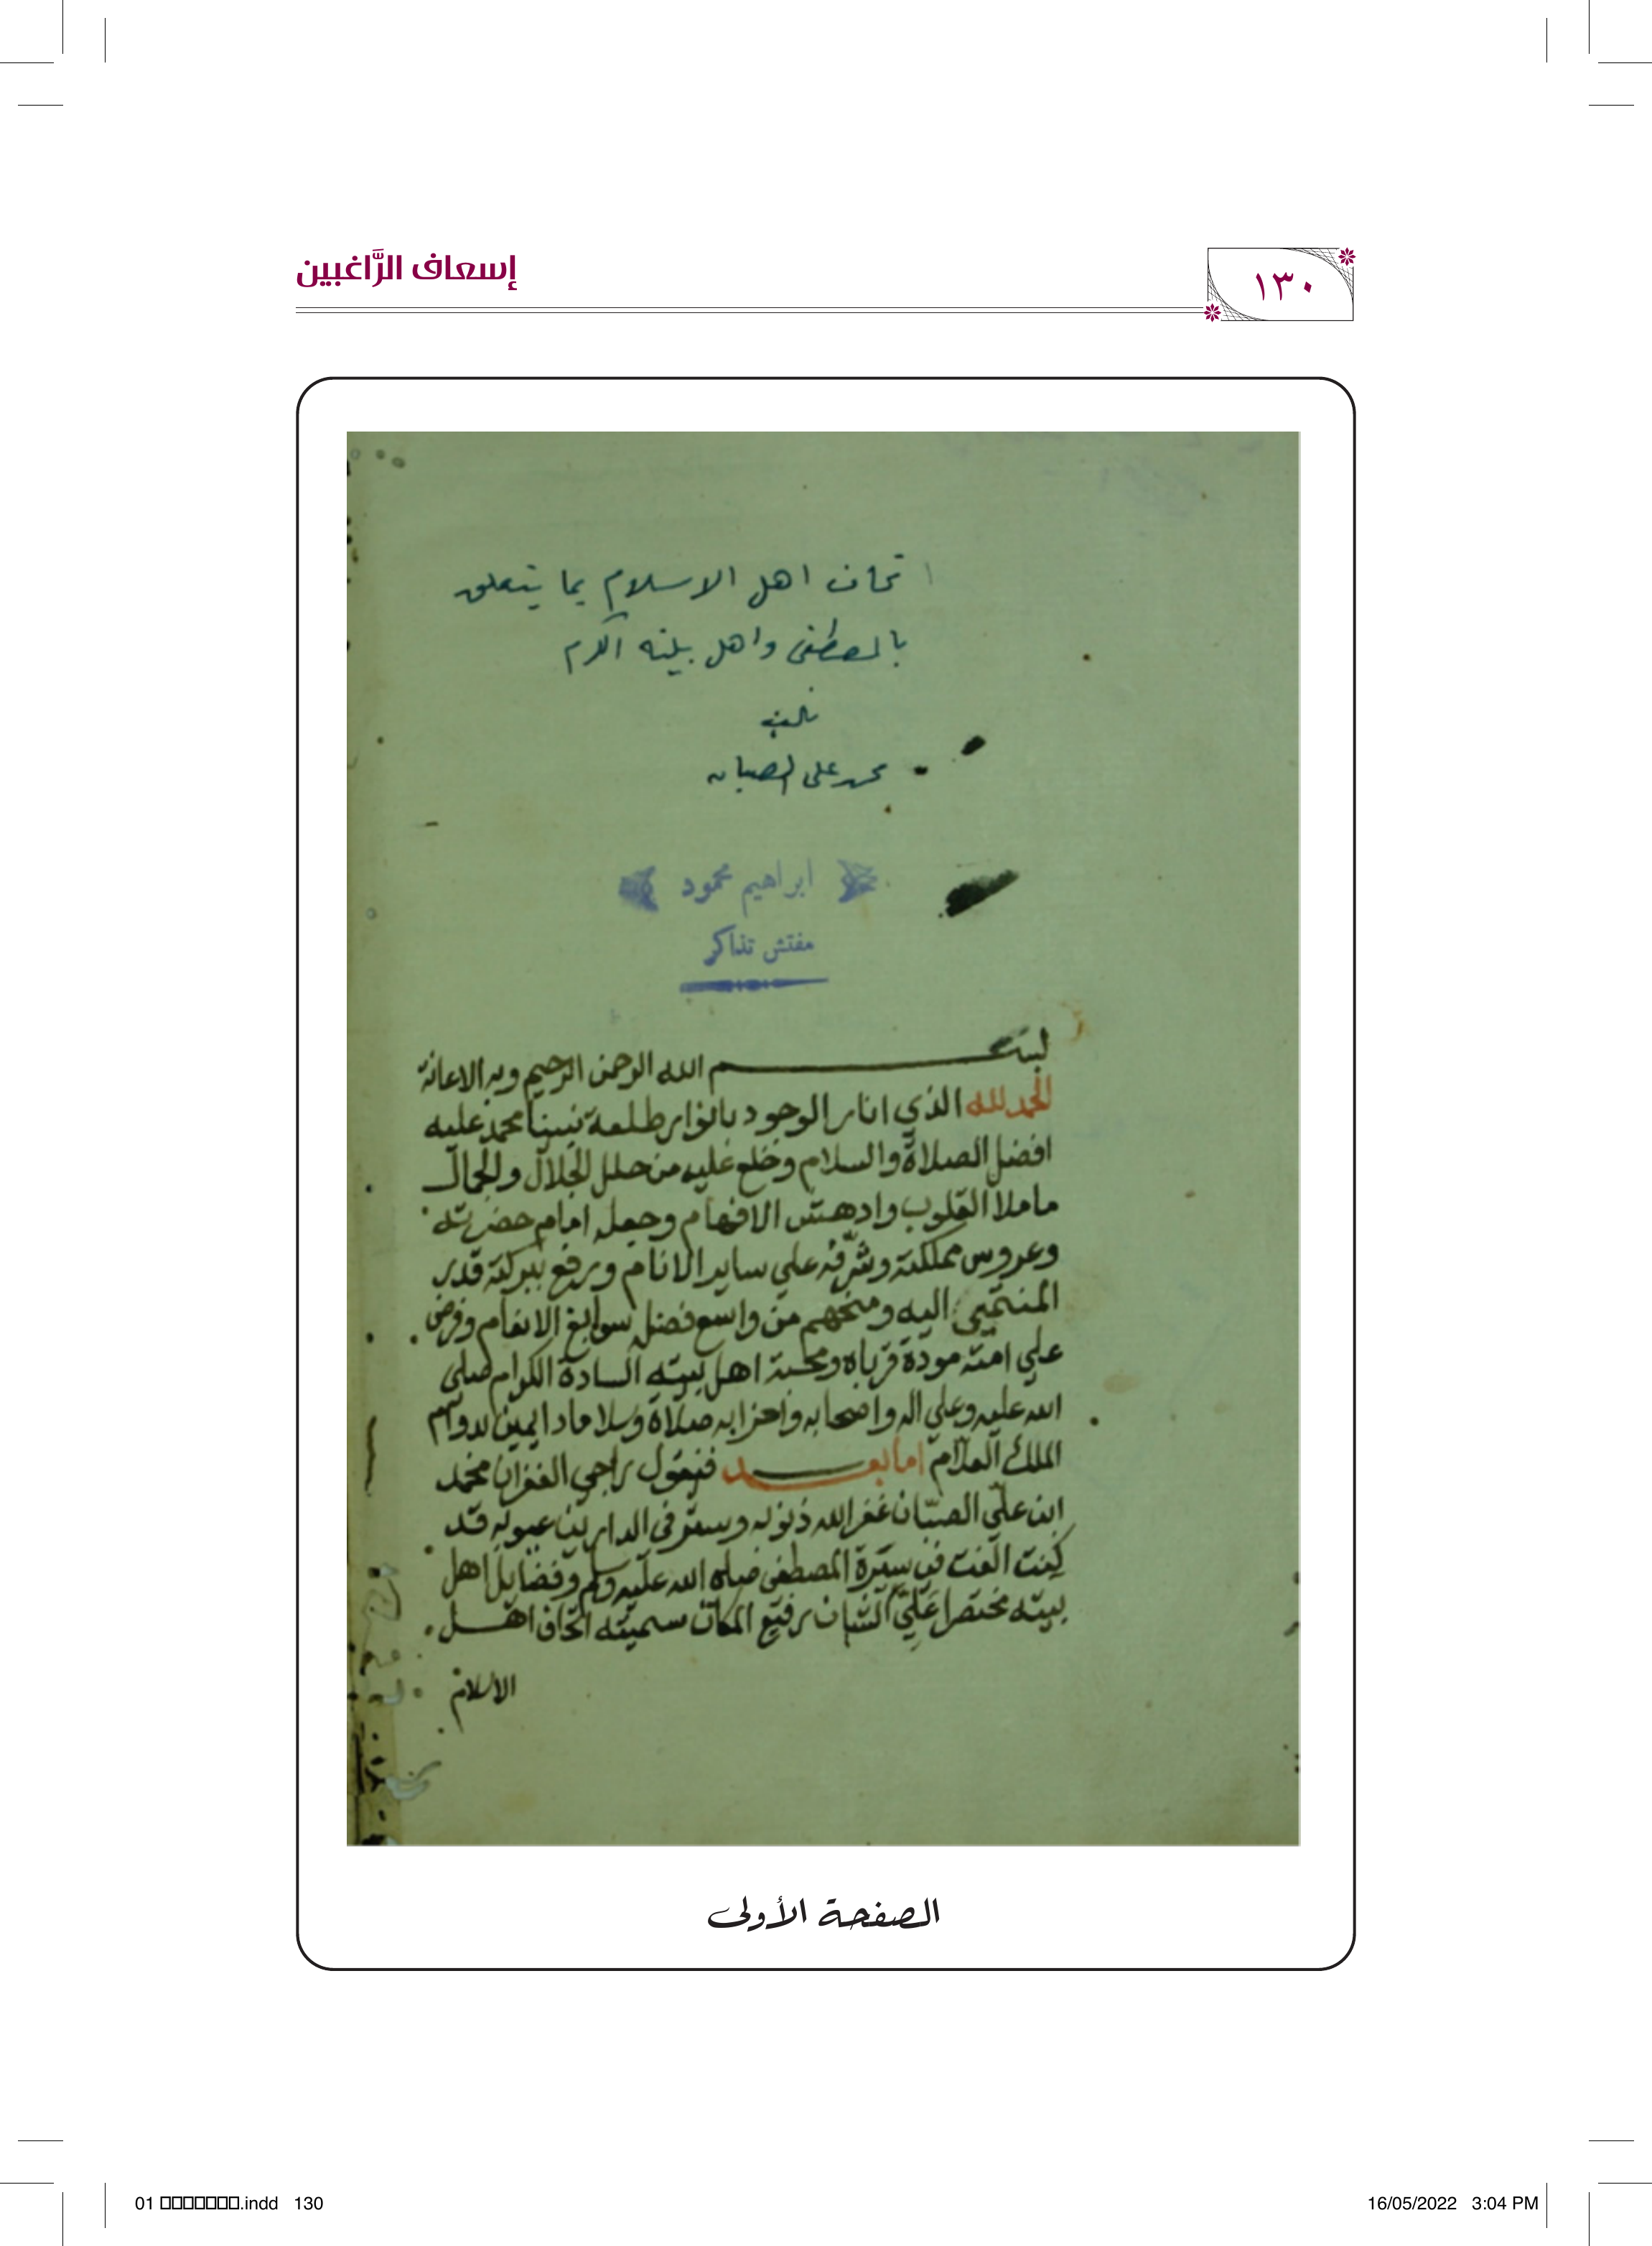 إسعاف الرَّاغبين
١٣٠
اتحاف اهل الاسلام بما يتعلق
بالمصطفى واهل بيته الكرم
تاليف
محمد على الصبان
ابراهيم محمود
مفتش تذاكر
بسم الله الرحمن الرحيم وبه الاعانة
الحمد لله الذي انار الوجود بانوار طلعة نبينا محمد عليه
افضل الصلاة والسلام وخلع عليه من حلل الجلال والجمال
ما ملا القلوب وادهش الافهام وجعله امام حضرته
وعروس مملكته وشرفه علي ساير الانام ورفع ببركته قدر
المنتمين اليه ومنحهم من واسع فضله سوابغ الانعام وفرض
علي امته مودة قرباه ومحبة اهل بيته السادة الكرام صلى
الله عليه وعلي اله واصحابه واحزابه صلاة وسلاما دايمين بدوام
الملك العلام اما بعد فيقول راجي الغفران محمد
ابن علي الصبان غفر الله ذنوبه وستر في الدارين عيوبه قد
كنت الفت في سيرة المصطفى صلى الله عليه وسلم وفضايل اهل
بيته مختصرا عليّ الشان رفيع المكان سميته اتحاف اهل
الاسلام
الصفحة الأولى
01 □□□□□□□.indd 130
16/05/2022 3:04 PM